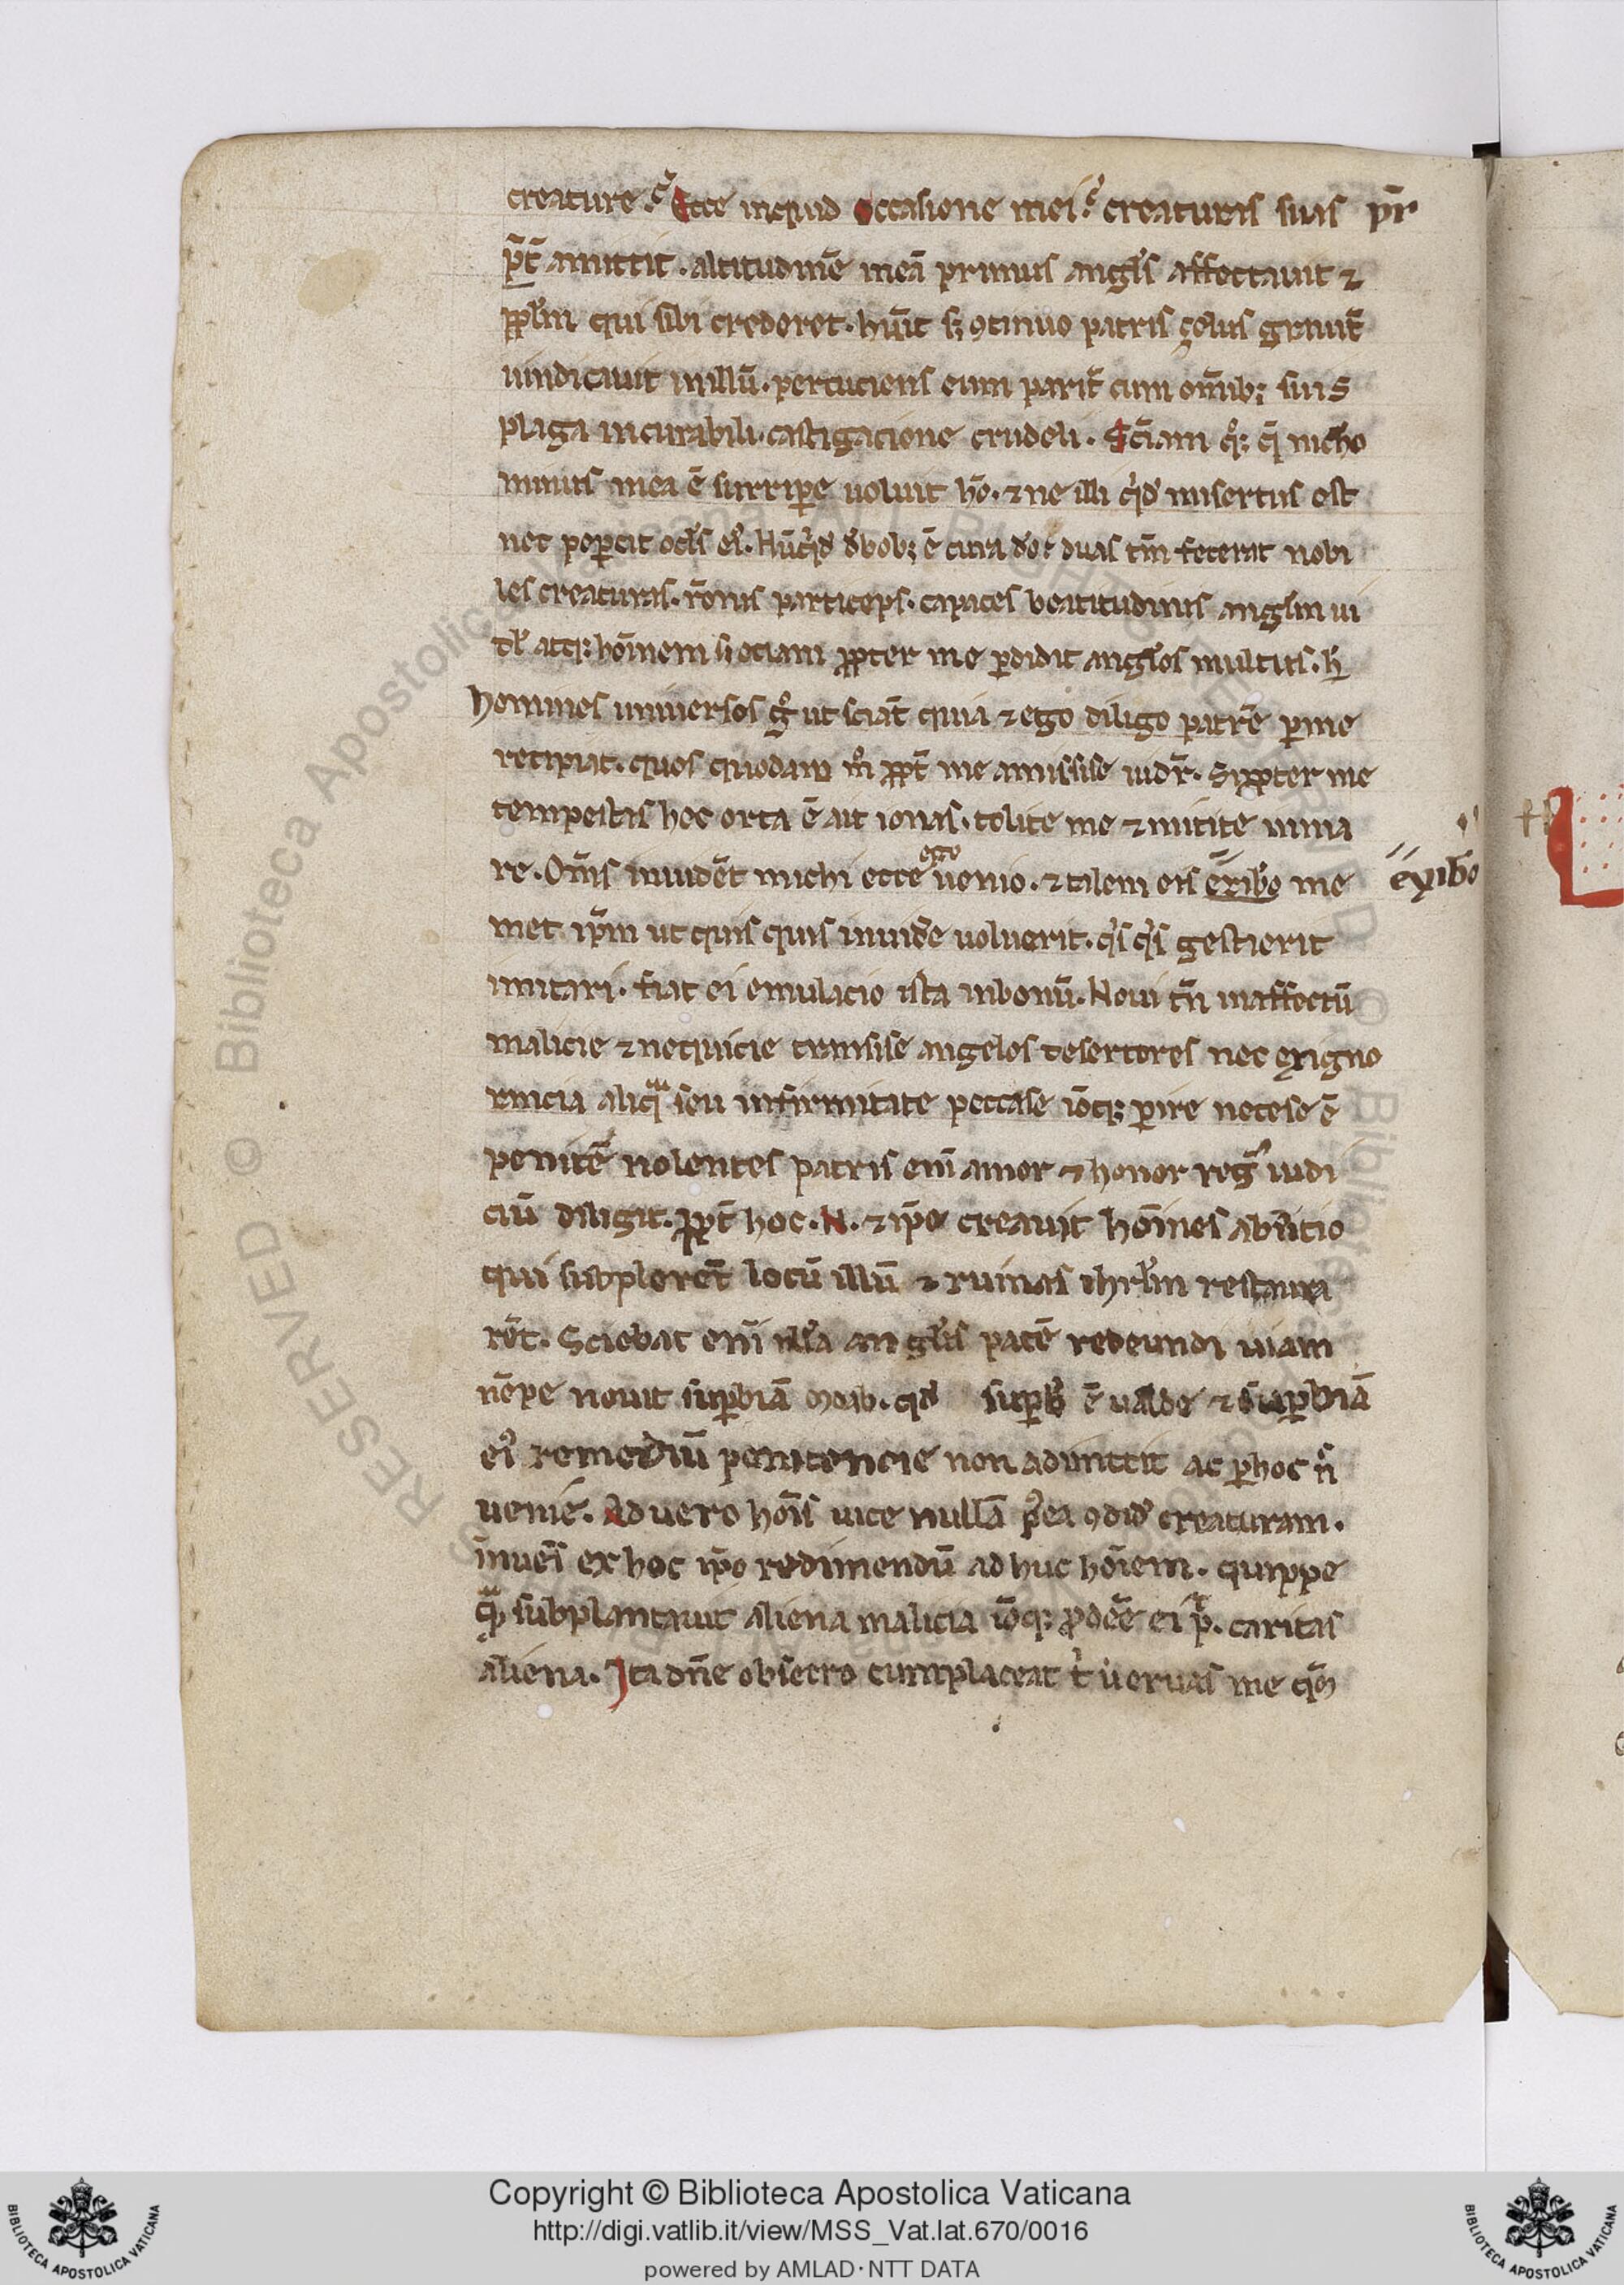 creature. Ecce inquid occasione mei. creaturis suis pr̄
pt̄ amittit. altitudinē meā primus angl's affectauit ⁊
ppl'm qui sibi crederet. hūit sꝫ ꝯtinuo patris zelus grauit̄
uindicauit in illū. percuciens eum parit̄ cum om̄ibꝫ suis
plaga incurabili. castigacione crudeli. Sciam nicho
minus mea ē surripe uoluit hō. ⁊ ne illi misertus est
nec pepcit ocl's ei'. Nūqd de bobꝫ ē cura do? duas tm̄ fecerat nobi
les creaturas. rōnis particeps. capaces beatitudinis anglm ui
atqꝫ hōīnem ꝓpter me pdidit angl'os multus. h̄
homines uniuersos gͦ ut sciāt quia ⁊ ego diligo patrē p me
recipiat. quos quodam mͦ ꝓpt̄ me amisisse uidr̄. Si ꝓpter me
tempestas hec orta ē ait ionas. tolite me ⁊ mitite in ma
re. Om̄s inuidēt michi ecce ego uenio. ⁊ talem eis exibeo me
exibeo
met ipm̄ ut quis quis inuide uoluerit. qͥs qͥs gestierit
imitari. fiat ei emulacio ista in bonū. Noui tn̄ in affectū
malicie ⁊ nequicie transisse angelos desertores nec ex igno
rancia aliqͣ seu infirmitate peccasse iōqꝫ pire necesse ē
penitē nolentes patris eni amor ⁊ honor reg' iudi
ciū diligit. ꝓpt̄ hoc. N. ⁊ ip̄e creauit hōīnes ab initio
qui supplerēt locū illū ⁊ ruinas ihrl'm restaura
rēt. Sciebat enī ill'a angl'is patē redeundi uiam
nēpe nouit supbiā moab. qd supb' ē ualde ⁊ supbiā
ei' remediū penitencie non admittit ac p hoc n̄
uenie. Ad uero hoīs uice nullā p'ea ꝯdid' creaturam.
inuēs ex hoc ip̄o redimendū ad huc hōīem. quippe
qͣ subplantauit aliena malicia iōqꝫ ꝓdeē ei p. caritas
aliena. Ita dn̄e obsecro cumplaceat tͥ ut eruas me qm̄
Copyright © Biblioteca Apostolica Vaticana
http://digi.vatlib.it/view/MSS_Vat.lat.670/0016
powered by AMLAD·NTT DATA
BIBLIOTECA APOSTOLICA VATICANA
BIBLIOTECA APOSTOLICA VATICANA